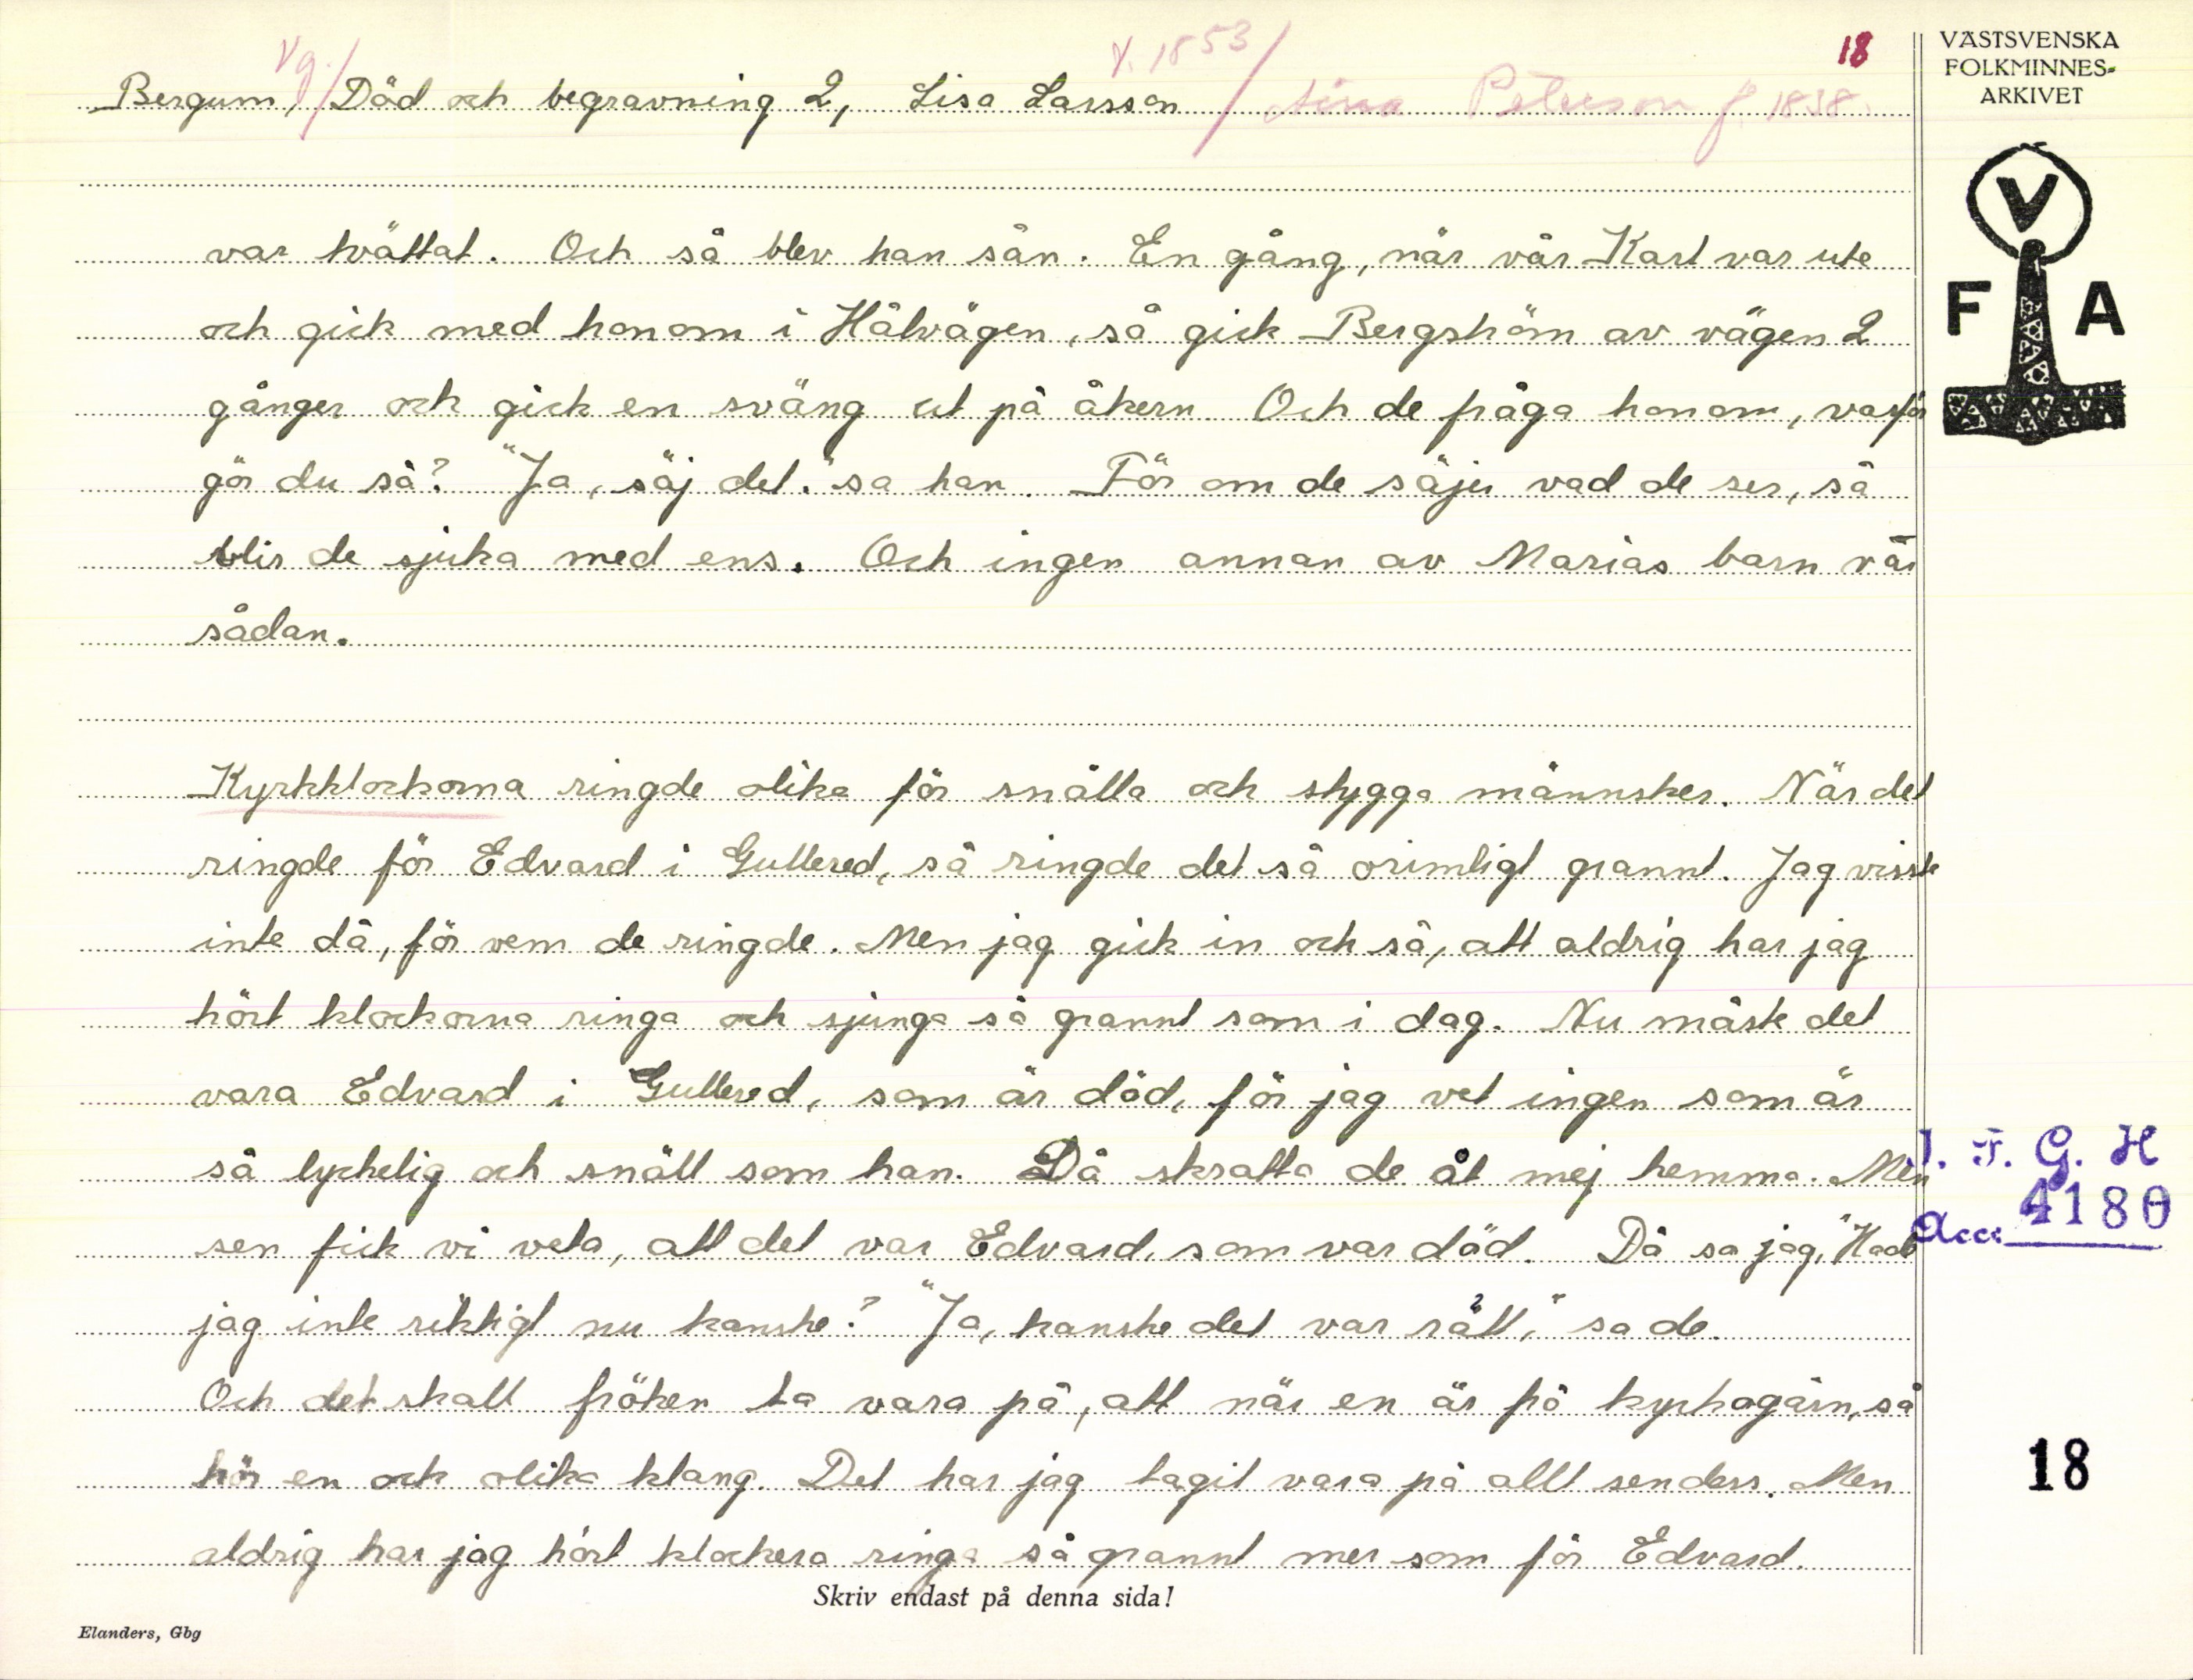 18
VÄSTSVENSKA
FOLKMINNES-
ARKIVET
Vg./
f. 1853/
Bergum, Död och begravning 2, Lisa Larsson / Peterson f. 1838.
V
F A
var tvättat. Och så blev han sån. En gång, när vår Karl var ute
och gick med honom i Hålvägen, så gick Bergström av vägen 2
gånger och gick en sväng ut på åkern. Och de fråga honom, varför
gör du så? "Ja, säj det." sa han. För om de säjer vad de ser, så
blir de sjuka med ens. Och ingen annan av Marias barn var
sådan.
Kyrkklockorna ringde olika för snälla och stygga männsker. När det
ringde för Edvard i Gullered, så ringde det så orimligt grannt. Jag visste
inte då, för vem de ringde. Men jag gick in och sa, att aldrig har jag
hört klockorna ringa och sjunga så grannt som i dag. Nu måste det
vara Edvard i Gullered, som är död, för jag vet ingen som är
så lyckelig och snäll som han. Då skratta de åt mej hemma. Men
sen fick vi veta, att det var Edvard, som var död. Då sa jag, "Hade
jag inte riktigt nu kanske? "Ja, kanske det var rätt," sa de.
Och det skall fröken ta vara på, att när en är på kyrkogårn, så
hör en ock olika klang. Det har jag tagit vara på allt senders. Men
aldrig har jag hört klockera ringa så grannt mer som för Edvard.
I. F. G. H
Acc: 4180
18
Skriv endast på denna sida!
Elanders, Gbg